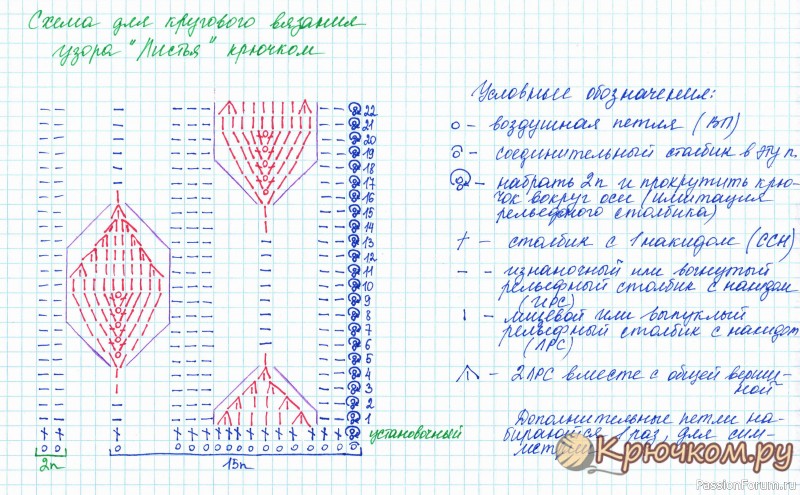 Схема для кругового вязания
узора "Листья" крючком
22
21
20
19
18
17
16
15
14
13
12
11
10
9
8
7
6
5
4
3
2
1
установочный
2п
15п
Условные обозначения:
о - воздушная петля (ВП)
- соединительный столбик в эту п.
- набрать 2п и прокрутить крю-
чок вокруг оси (имитация
рельефного столбика)
- столбик с 1 накидом (ССН)
- изнаночный или вогнутый
рельефный столбик с накидом
(ИРС)
- лицевой или выпуклый
рельефный столбик с накидом
(ЛРС)
- 2ЛРС вместе с общей верши-
ной
Дополнительные петли на-
бираются 1 раз, для сим-
метрии
Крючком.ру
PassionForum.ru